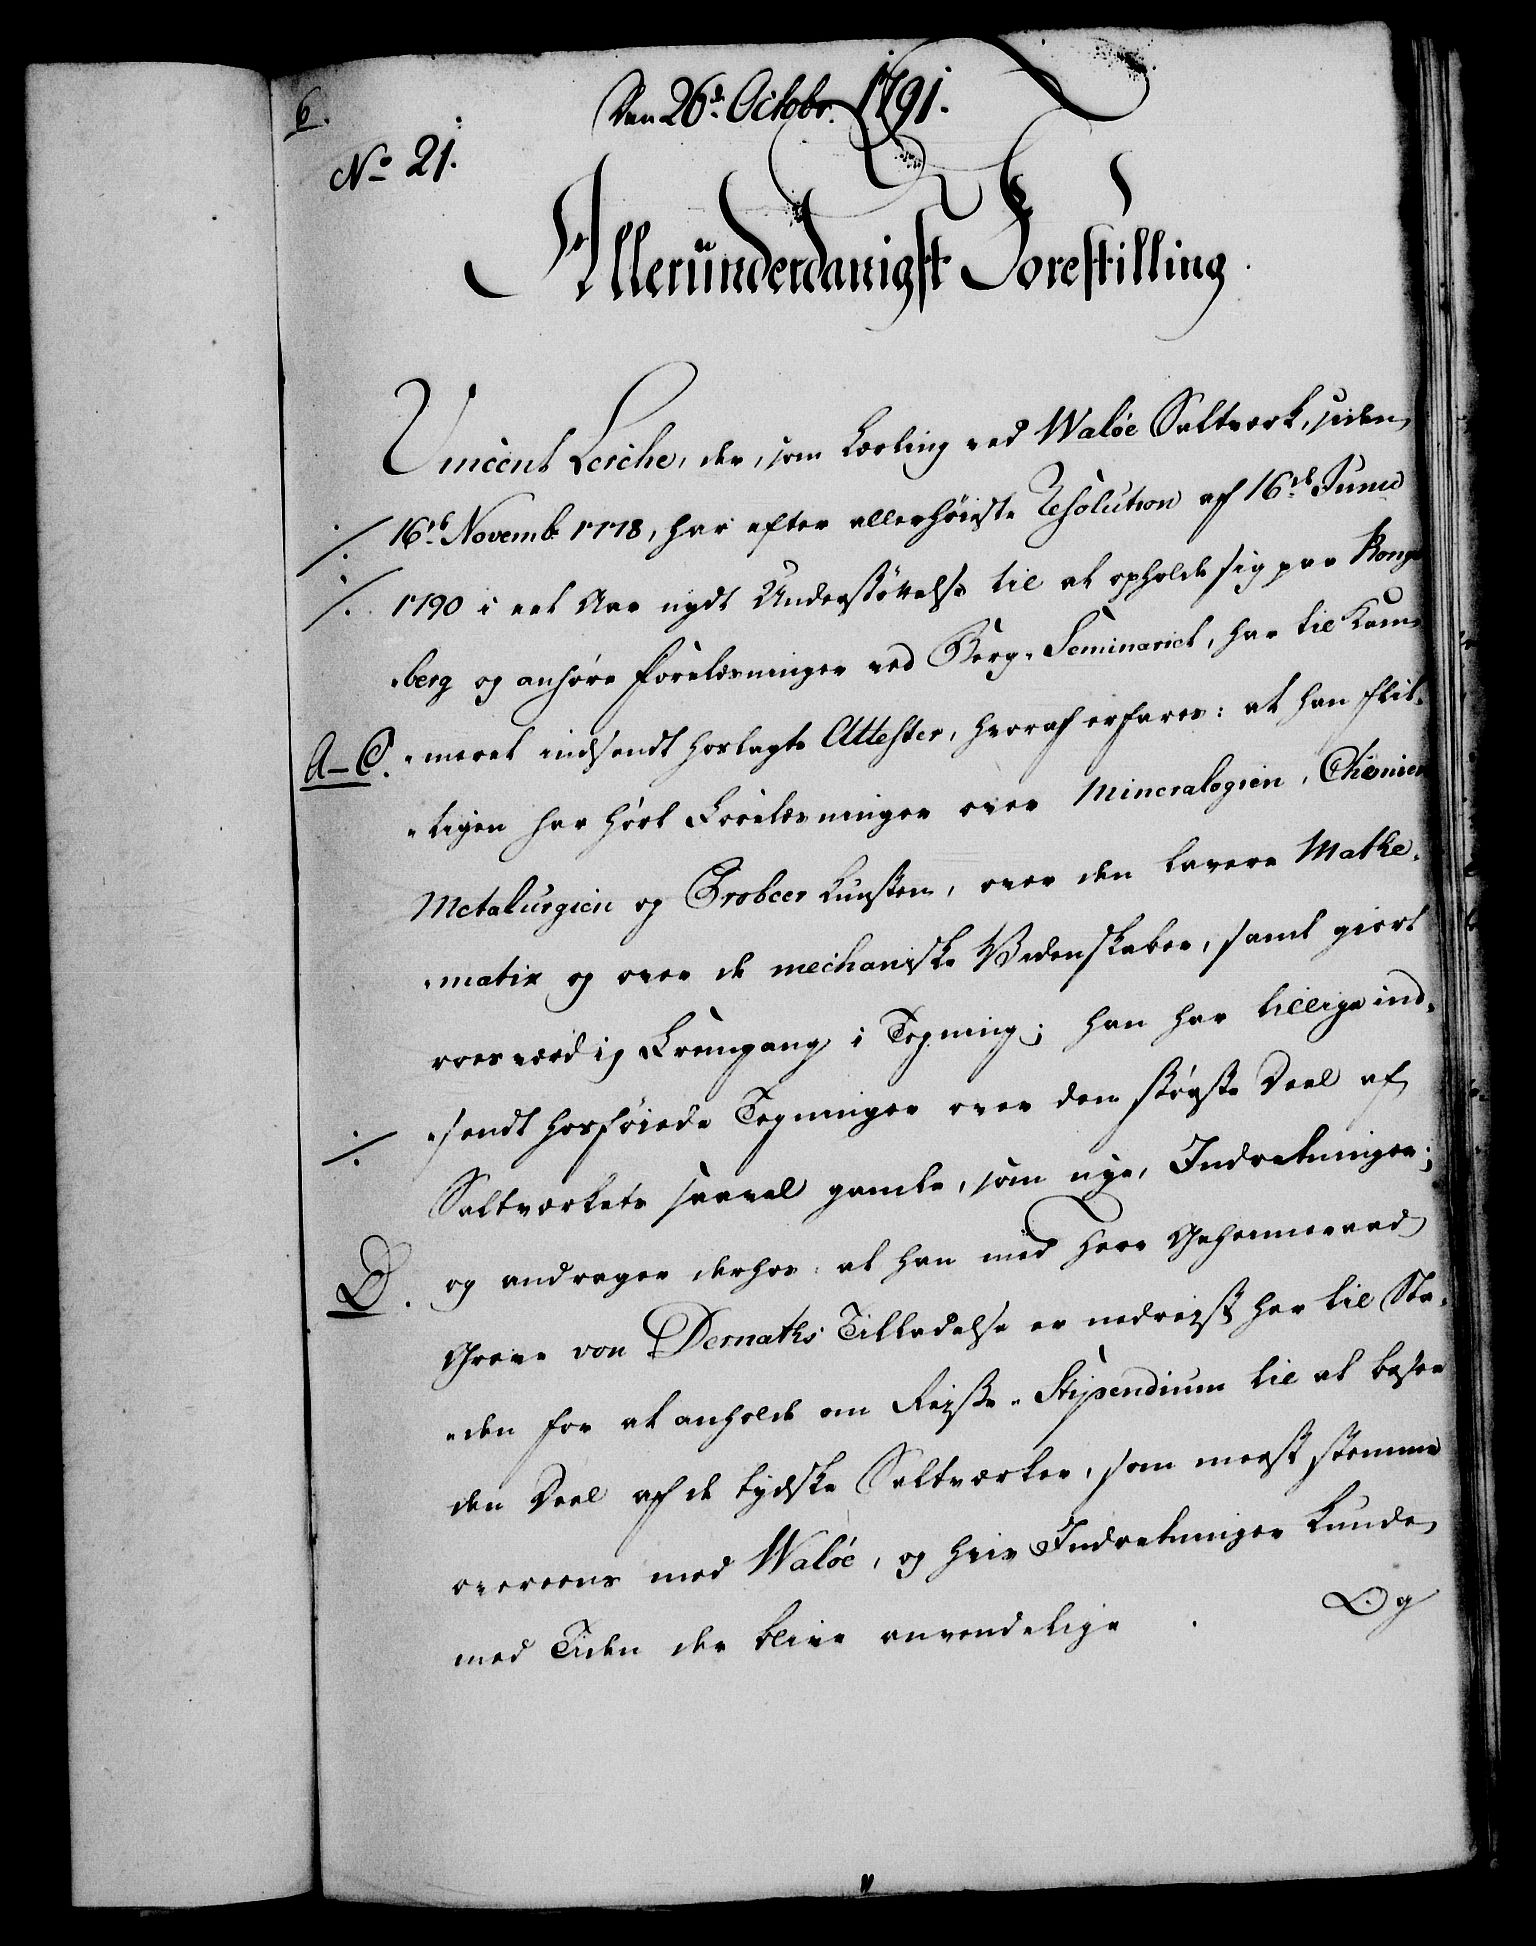 6.
Den 26de Octobr. 1791.
No 21.
Allerunderdanigst Forestilling.
Vincent Lerche, der, som Lærling ved Waløe Saltværk, siden
16de Novemb. 1778, har efter allerhøieste Resolution af 16de Junii
1790 i eet Aar nydt Understøttelse til at opholde sig paa Kongs-
-berg og anhøre Forelæsninger ved Berg-Seminariet, har til Kam-
A-C. -meret indsendt hoslagte Attester, hvoraf erfares: at han flit-
-tigen har hørt Forelæsninger over Mineralogien, Chemien
Metalurgien og Probeer Kunsten, over den lavere Mathe-
-matik og over de mechaniske Videnskaber, samt giort
roesværdig Fremgang i Tegning; han har tillige ind-
-sendt hosføiede Tegninger over den største Deel af
Saltværkets saavel gamle, som nye, Indretninger;
D. og andrager derhos, at han med Herr Geheimeraad
Greve von Dernaths Tilladelse er nedreist her til Sta-
-den for at anholde om Reise-Stipendium til at besee
den Deel af de tydske Saltværker, som meest stemme
overeens med Waløe, og hvis Indretninger kunde
med Tiden der blive anvendelige.
Og